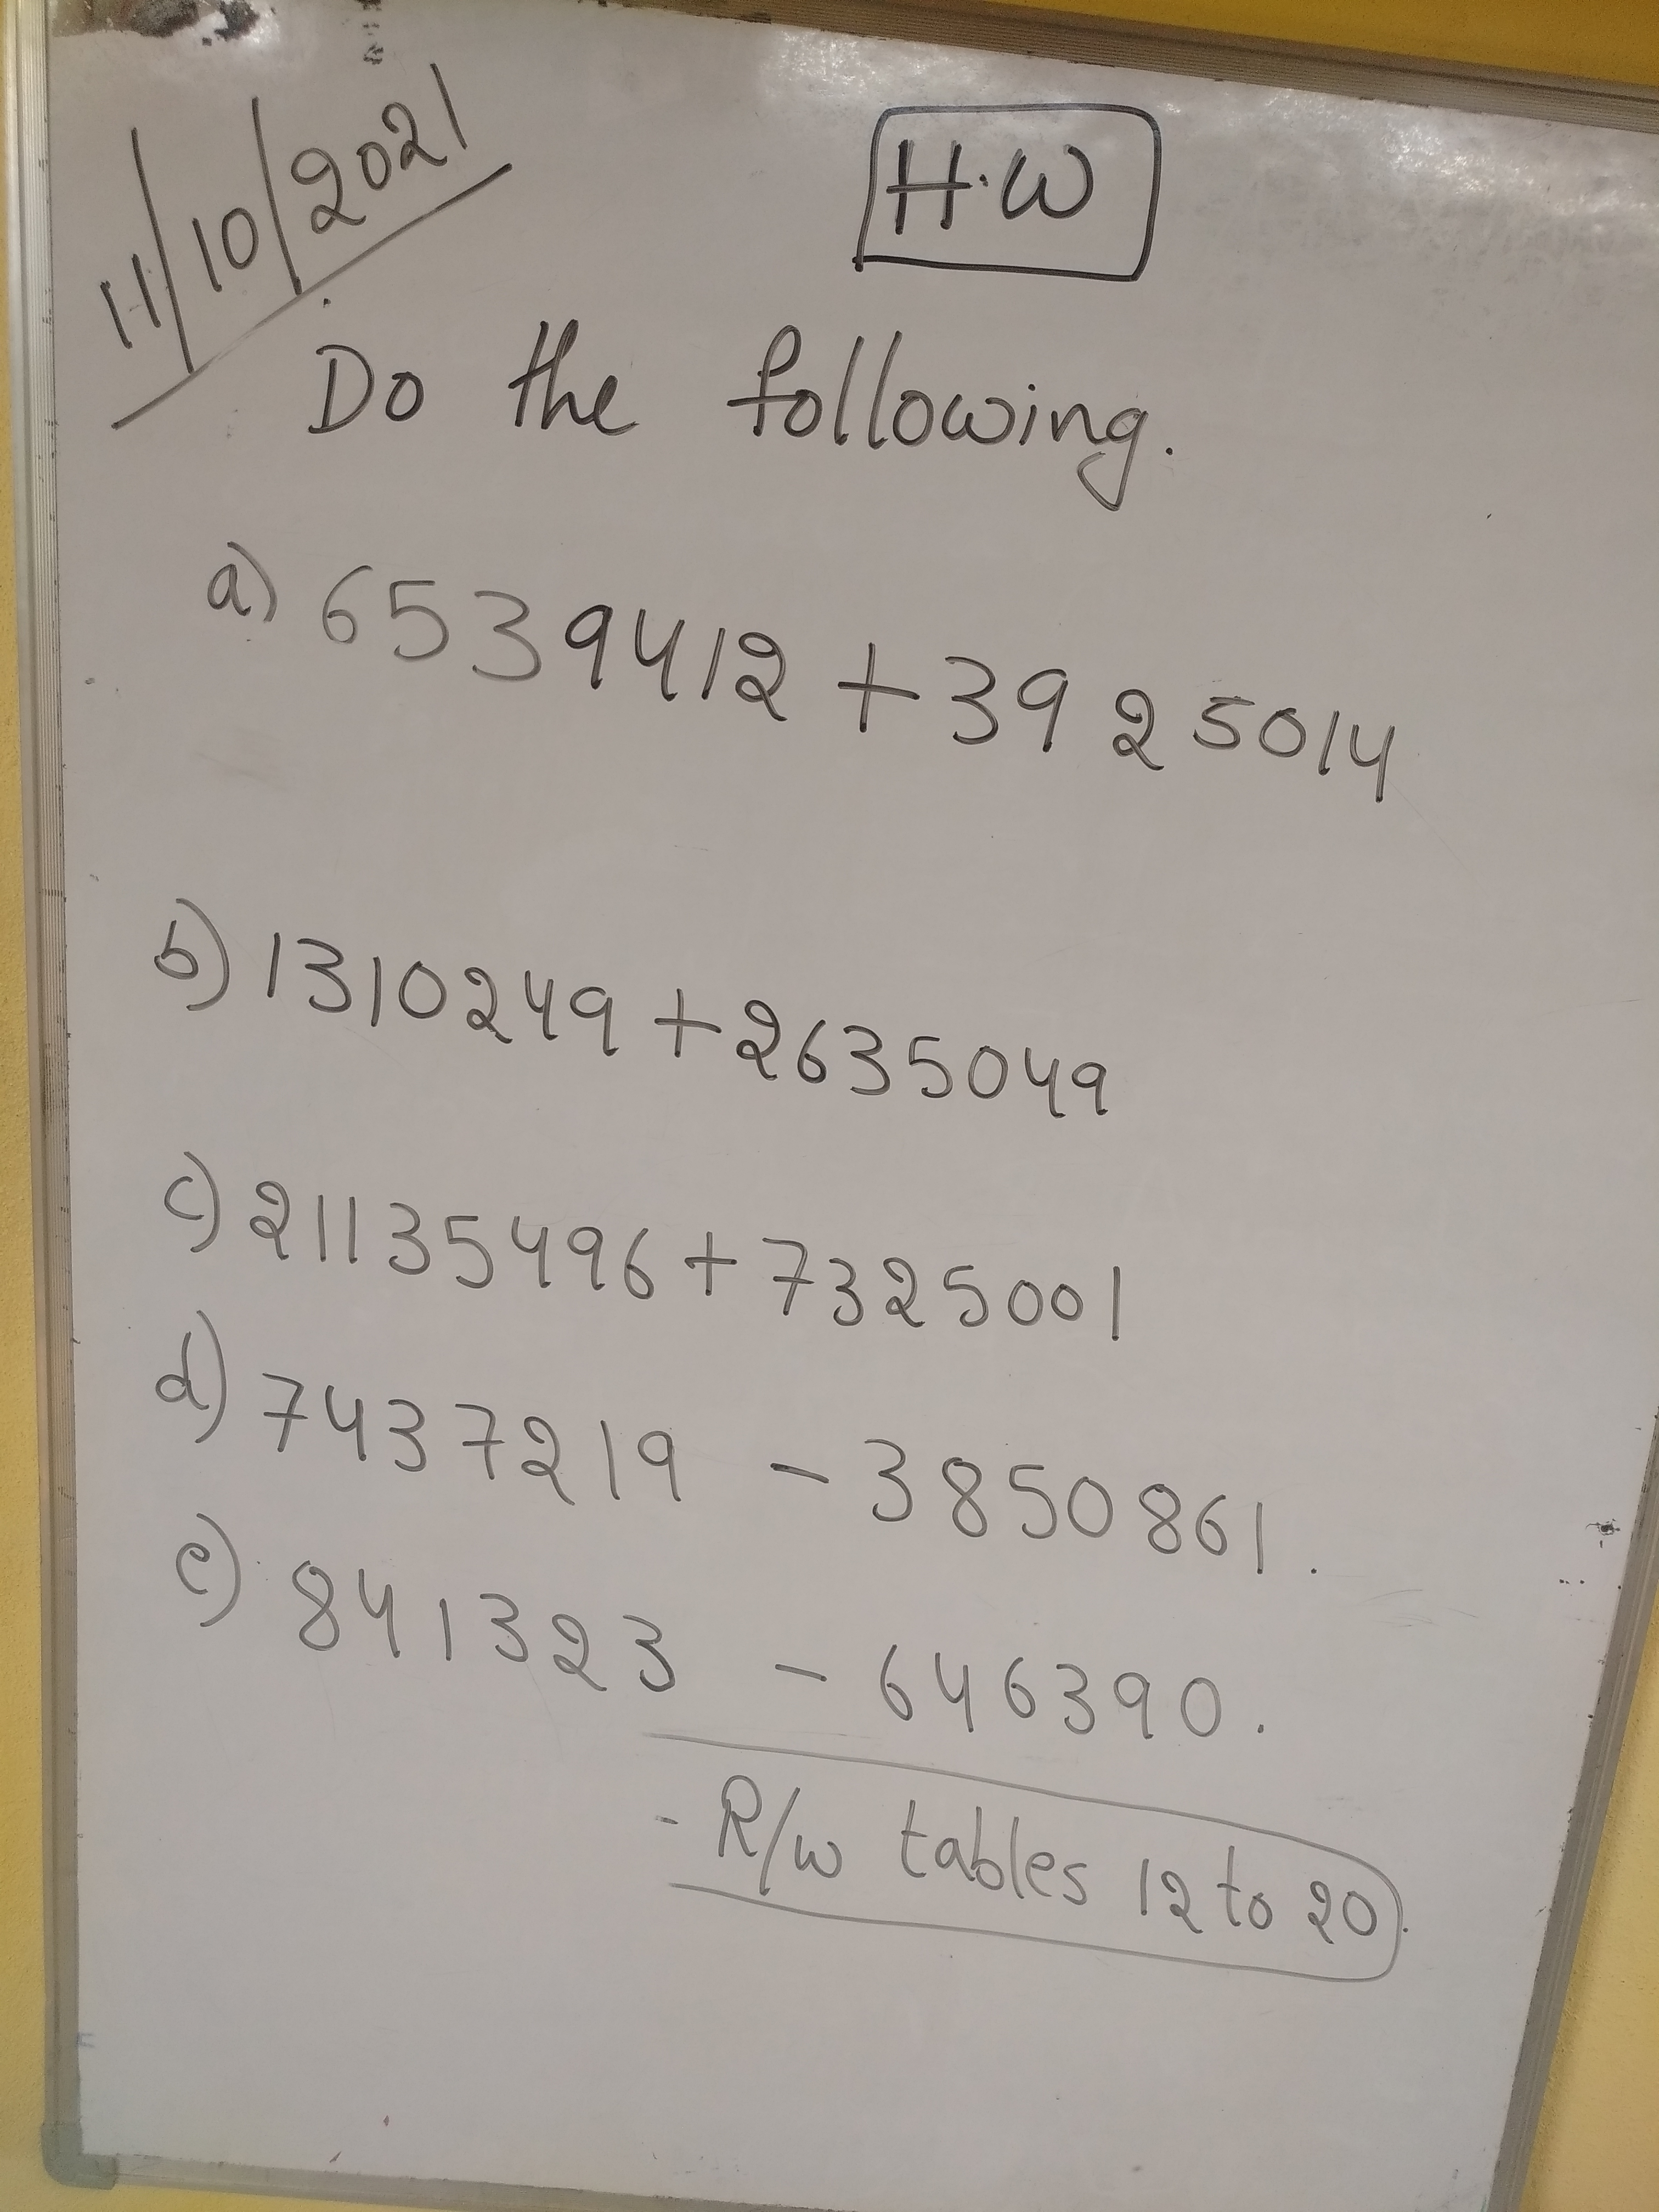 11/10/2021
H.W
Do the following.
a) 6539412 + 3925014
b) 1310249 + 2635049
c) 21135496 + 7325001
d) 7437219 - 3850861.
e) 841323 - 646390.
- R/w tables 12 to 20.